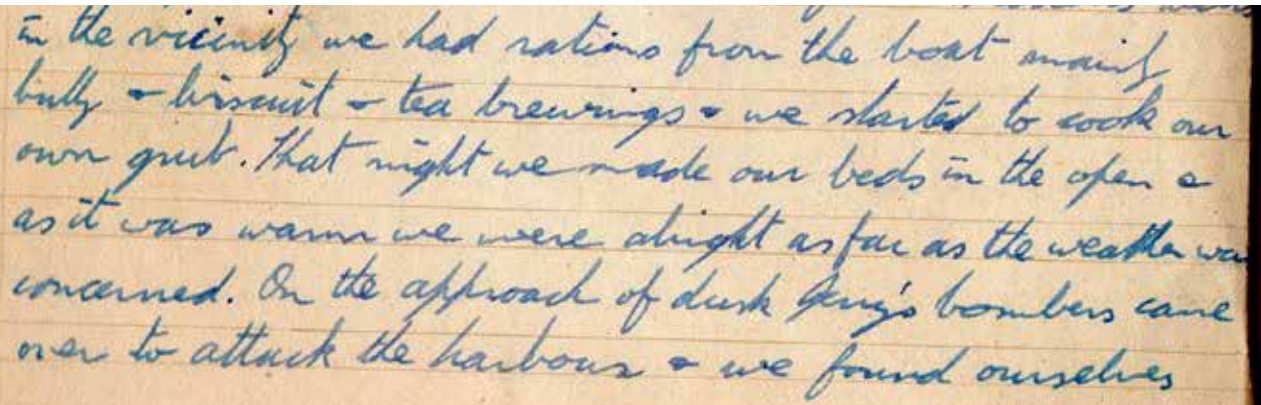 in the vicinity we had rations from the boat mainly
bully & biscuit & tea brewings & we started to cook our
own grub. That night we made our beds in the open &
as it was warm we were alright as far as the weather was
concerned. On the approach of dusk Jerry's bombers came
over to attack the harbour & we found ourselves